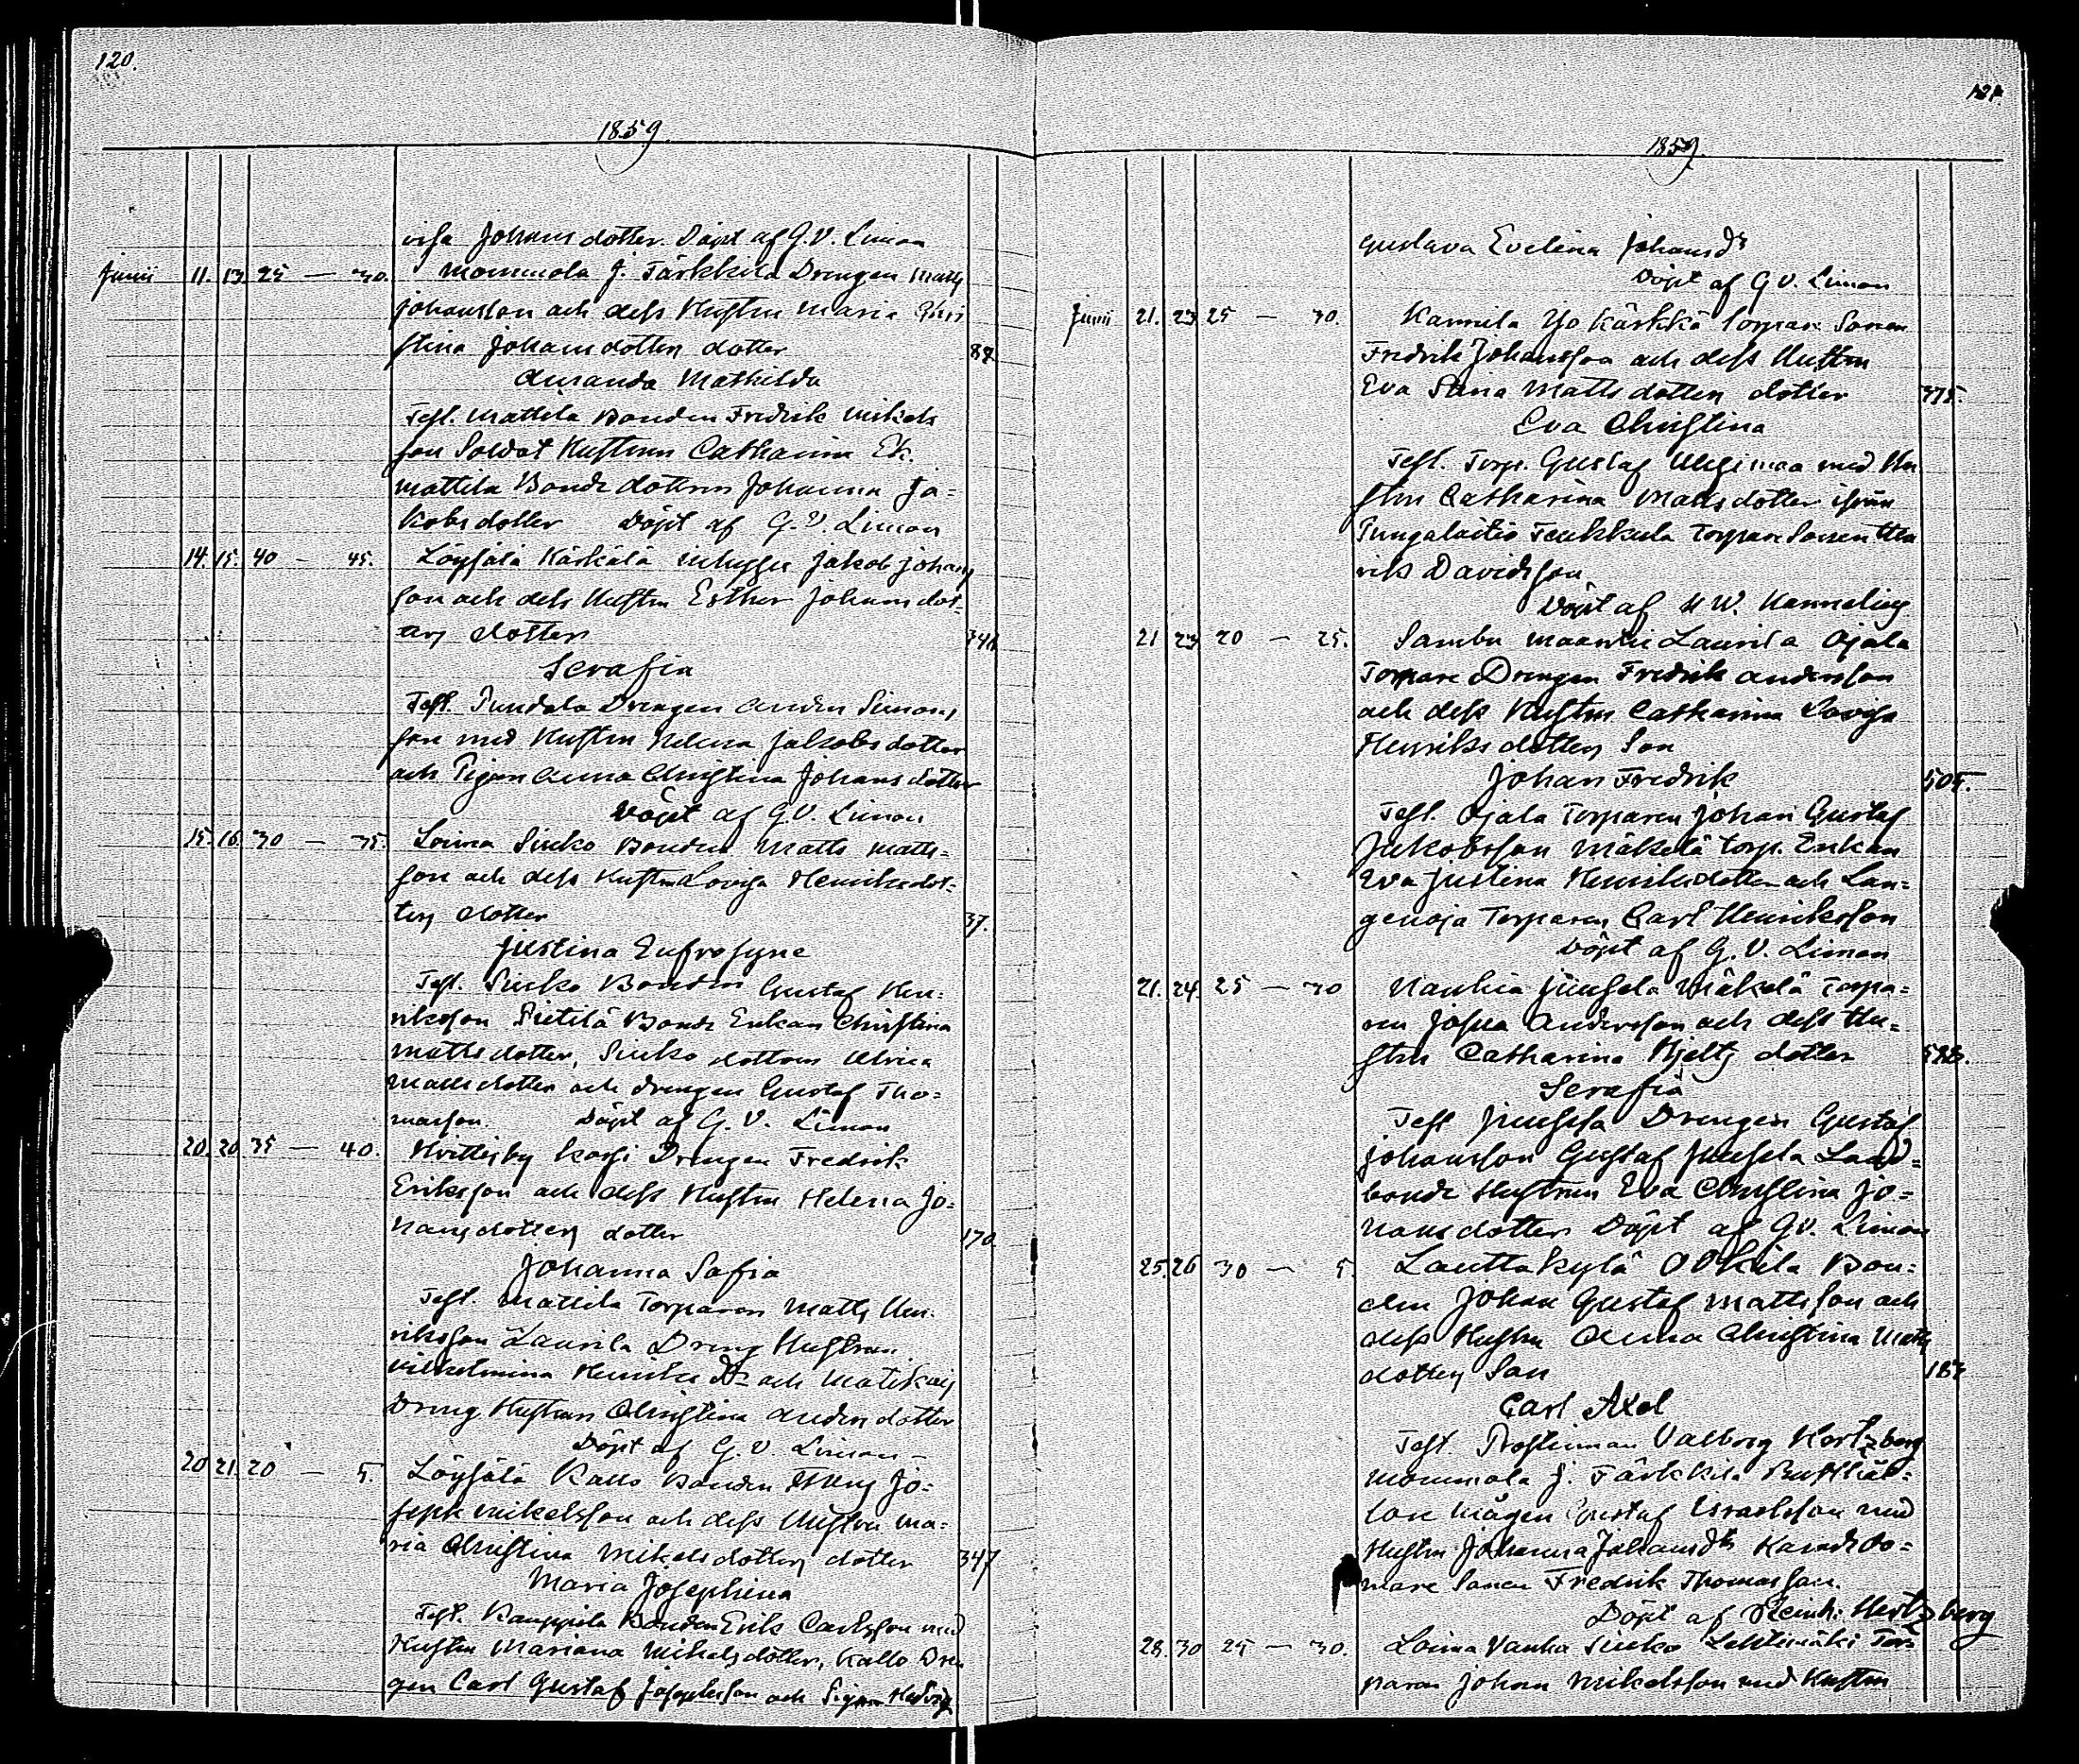 120.
1859
visa Johansdotter. Döpt af G. V. Limon
Junii 11. 13. 25 — 30. Mommola J. Tärkkilä Drengen Matts
Johansson och dess Hustru Maria Chri
stina Johansdotters dotter 87
Amanda Mathilda
Test. Mattila Bonden Fredrik Mikels
son Soldat Hustrun Catharina Ek.
Mattila Bonde dottren Johanna Ja=
kobsdotter Döpt af G. V. Limon
14. 15. 40 — 45. Löysälä Kärkälä inhyses Jakob Johans
son och dess Hustru Esther Johansdot=
ters dotter
Serafia
Test. Pundola Drengen Anders Simons
son med Hustru Helena Jakobsdotter
och Pigan Anna Christina Johansdotter
Döpt af G. V. Limon
15. 16. 30 — 35. Loima Sinko Bonden Matts Matts=
son och dess Hustru Lovisa Henriksdot=
ters dotter 37.
Justina Eufrosyne
Test. Sinko Bonden Gustaf Hen=
riksson Pietilä Bonde Enkan Christina
Mattsdotter, Sinko dottren Ulrica
Mattsdotter och drengen Gustaf Tho=
masson. Döpt af G. V. Limon
20. 20. 35 — 40. Hvittisby Kassi Drengen Fredrik
Eriksson och dess Hustru Helena Jo=
hansdotters dotter 170
Johanna Sofia
Test. Mattila Torparen Matts Hen=
riksson Laurila Dreng Hustrun
Vilhelmina Henriks Dr och
Dreng Hustrun Christina Andersdotter
Döpt af G. V. Limon
20 21. 20 — 5. Löysälä Kallo Bonden Jo=
seph Mikelsson och dess Hustru Ma=
ria Christina Mikelsdotters dotter 347
Maria Josephina
Test. Kauppila Bonden Erik Carlsson med
Hustru Mariana Mikelsdotter, Kallo Dren
gen Carl Gustaf Josephsson och Pigan Hedvig
121.
1859.
Gustava Evelina Johansdr
Döpt af G V. Limon
Junii 21. 23 25 — 30. Kannila Yo Kärkkä Torpare Sonen
Fredrik Johansson och dess Hustru
Eva Stina Mattsdotters dotter 375.
Eva Christina
Test. Torp. Gustaf med Hu
stru Catharina Mattsdotter ifrån
Pungalaitio Torpare Sonen Hen
rik Davidsson
Döpt af K W. Hannelius
21 23 20 — 25. Sambu Laurila Ojala
Torpare Drengen Fredrik Andersson
och dess Hustru Catharina Lovisa
Henriksdotters Son
Johan Fredrik 505.
Test. Ojala Torparen Johan Gustaf
Jakobsson Mäkelä torp. Enkan
Eva Justina Henriksdotter och Lan=
genoja Torparen Carl Henriksson
Döpt af G. V. Limon
21. 24. 25 — 30 Nanhia Juusela Mäkelä Torpa=
ren Josua Andersson och dess Hu=
stru Catharina Hjelts dotter
Serafia
Test Juusela Drengen Gustaf
Johansson Gustaf Juusela Land=
bonde Hustrun Eva Christina Jo=
hansdotter Döpt af G V. Limon
25. 26 30 — 5. Lauttakylä Ollkila Bon=
den Johan Gustaf Mattsson och
dess Hustru Anna Christina Matts
dotters Son 187
Carl Axel
Test Prostinnan Valborg Hertzberg
Mommola J. Tärkkilä Rusthål=
lare Mågen Gustaf Israelsson med
Hustru Johanna Johansdtr Härads do=
mare Sonen Fredrik Thomasson.
Döpt af Reinh. Hertzberg
28. 30 25 — 30. Loima Vanha Sinko Lehtimäki Tor=
paren Johan Mikelsson med Hustru